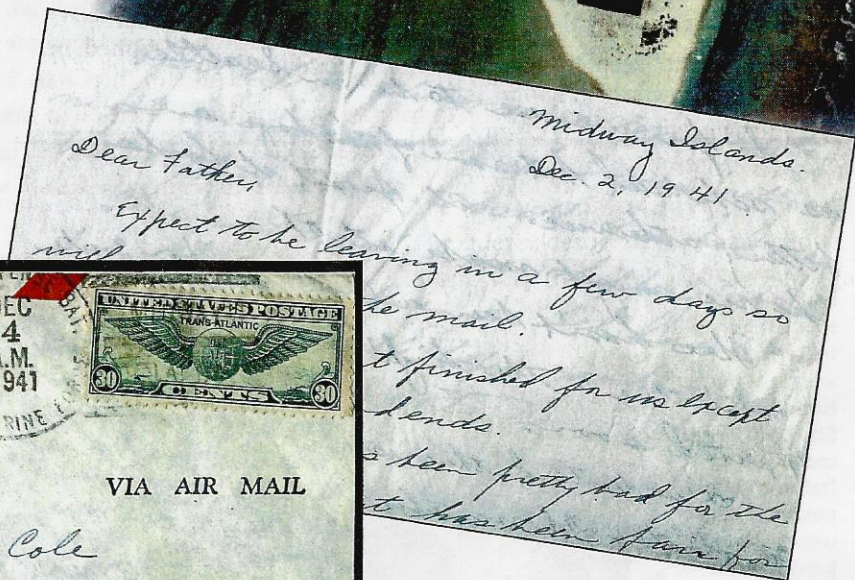 Midway Islands.
Dec. 2, 1941.
Dear Father,
Expect to be leaving in a few days so
will
he mail.
t finished for us except
dends.
s been pretty bad for the
t has been fair for
DEC
4
A.M.
1941
RINE FOR
UNITED STATES POSTAGE
TRANS-ATLANTIC
30 CENTS 30
VIA AIR MAIL
Cole